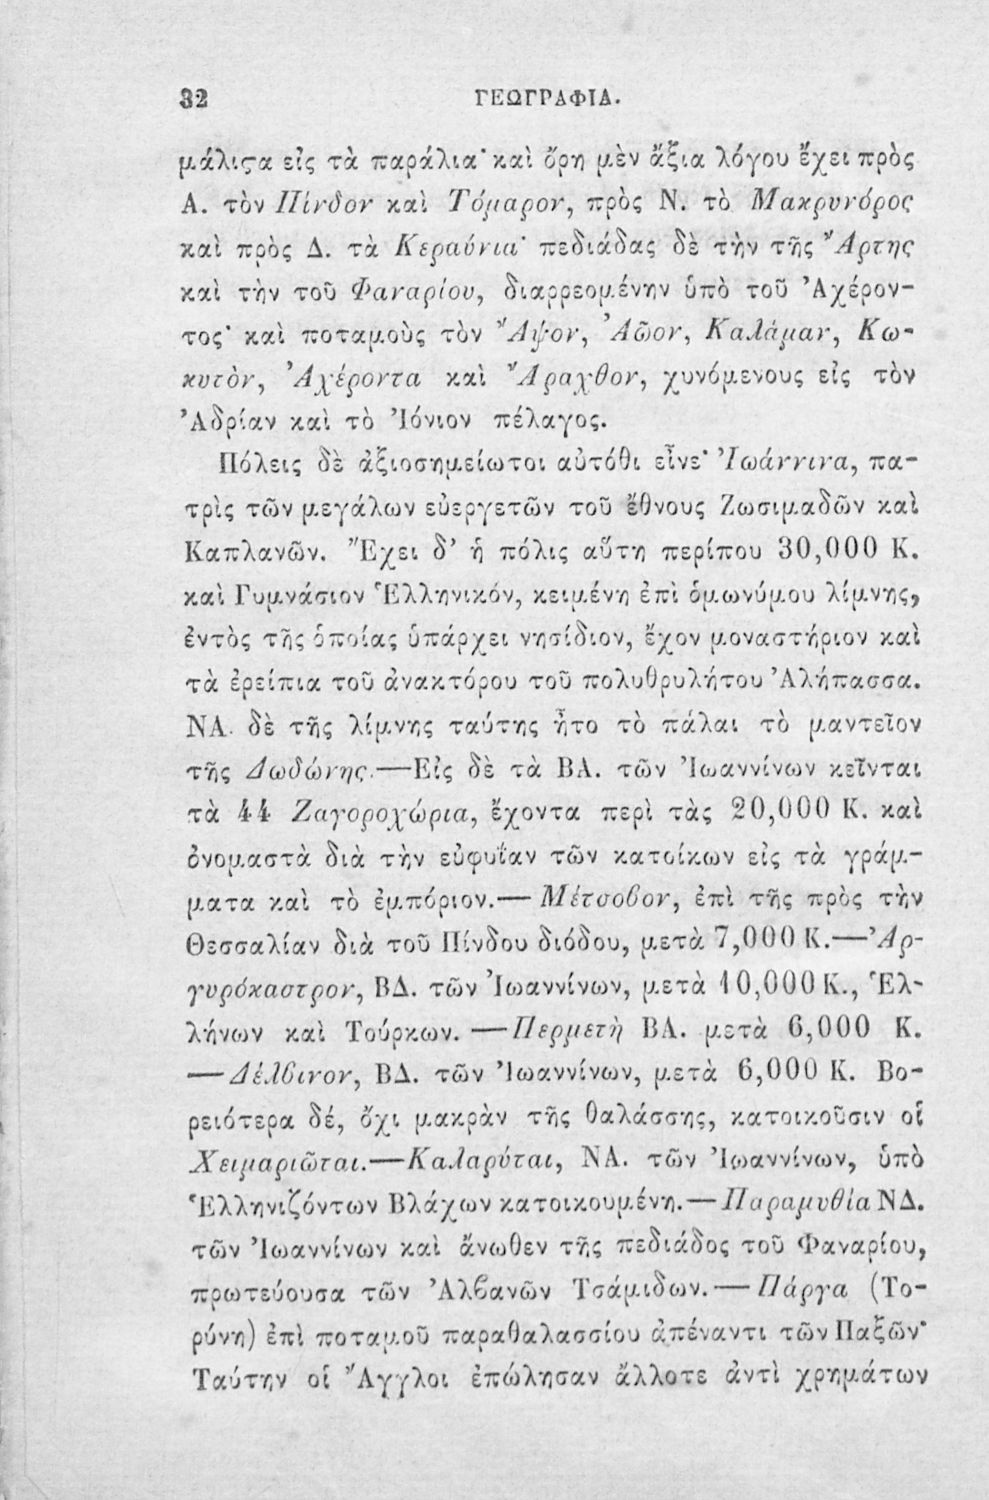 32 ΓΕΩΓΡΑΦΙΑ.
μάλιϛα εἰς τὰ παράλια· καὶ ὄρη μὲν ἄξια λόγου ἔχει πρὸς
Α. τὸν Πίνδον καὶ Τόμαρον, πρὸς Ν. τὸ Μακρυνόρος
καὶ πρὸς Δ. τὰ Κεραύνια· πεδιάδας δὲ τὴν τῆς Ἄρτης
καὶ τὴν τοῦ Φαναρίου, διαρρεομένην ὑπὸ τοῦ Ἀχέρον-
τος· καὶ ποταμοὺς τὸν Ἄψον, Ἀῶον, Καλάμαν, Κω-
κυτὸν, Ἀχέροντα καὶ Ἄραχθον, χυνόμενους εἰς τὸν
Ἀδρίαν καὶ τὸ Ἰόνιον πέλαγος.
Πόλεις δὲ ἀξιοσημείωτοι αὐτόθι εἶνε· Ἰωάννινα, πα-
τρὶς τῶν μεγάλων εὐεργετῶν τοῦ ἔθνους Ζωσιμαδῶν καὶ
Καπλανῶν. Ἔχει δ’ ἡ πόλις αὕτη περίπου 30,000 Κ.
καὶ Γυμνάσιον Ἑλληνικόν, κειμένη ἐπὶ ὁμωνύμου λίμνης,
ἐντὸς τῆς ὁποίας ὑπάρχει νησίδιον, ἔχον μοναστήριον καὶ
τὰ ἐρείπια τοῦ ἀνακτόρου τοῦ πολυθρυλήτου Ἀλήπασσα.
ΝΑ. δὲ τῆς λίμνης ταύτης ἦτο τὸ πάλαι τὸ μαντεῖον
τῆς Δωδώνης.—Εἰς δὲ τὰ ΒΑ. τῶν Ἰωαννίνων κεῖνται
τὰ 44 Ζαγοροχώρια, ἔχοντα περὶ τὰς 20,000 Κ. καὶ
ὀνομαστὰ διὰ τὴν εὐφυΐαν τῶν κατοίκων εἰς τὰ γράμ-
ματα καὶ τὸ ἐμπόριον.—Μέτσοβον, ἐπὶ τῆς πρὸς τὴν
Θεσσαλίαν διὰ τοῦ Πίνδου διόδου, μετὰ 7,000 Κ.—Ἀρ-
γυρόκαστρον, ΒΔ. τῶν Ἰωαννίνων, μετὰ 10,000 Κ., Ἑλ-
λήνων καὶ Τούρκων.—Περμετὴ ΒΑ. μετὰ 6,000 Κ.
—Δέλβινον, ΒΔ. τῶν Ἰωαννίνων, μετὰ 6,000 Κ. Βο-
ρειότερα δέ, ὄχι μακρὰν τῆς θαλάσσης, κατοικοῦσιν οἱ
Χειμαριῶται.—Καλαρύται, ΝΑ. τῶν Ἰωαννίνων, ὑπὸ
Ἑλληνιζόντων Βλάχων κατοικουμένη.—Παραμυθία ΝΔ.
τῶν Ἰωαννίνων καὶ ἄνωθεν τῆς πεδιάδος τοῦ Φαναρίου,
πρωτεύουσα τῶν Ἀλβανῶν Τσάμιδων.—Πάργα (Το-
ρύνη) ἐπὶ ποταμοῦ παραθαλασσίου ἀπέναντι τῶν Παξῶν·
Ταύτην οἱ Ἄγγλοι ἐπώλησαν ἄλλοτε ἀντὶ χρημάτων